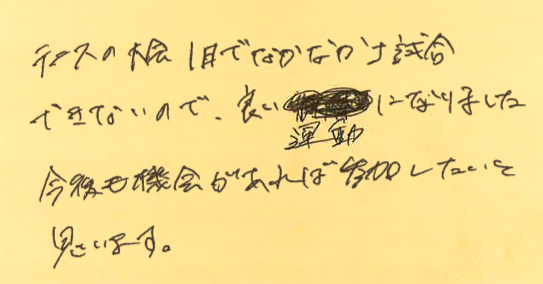 テニスの大会1日でなかなか試合
できないので、良い
運動
になりました
今後も機会があれば参加したいと
思います。